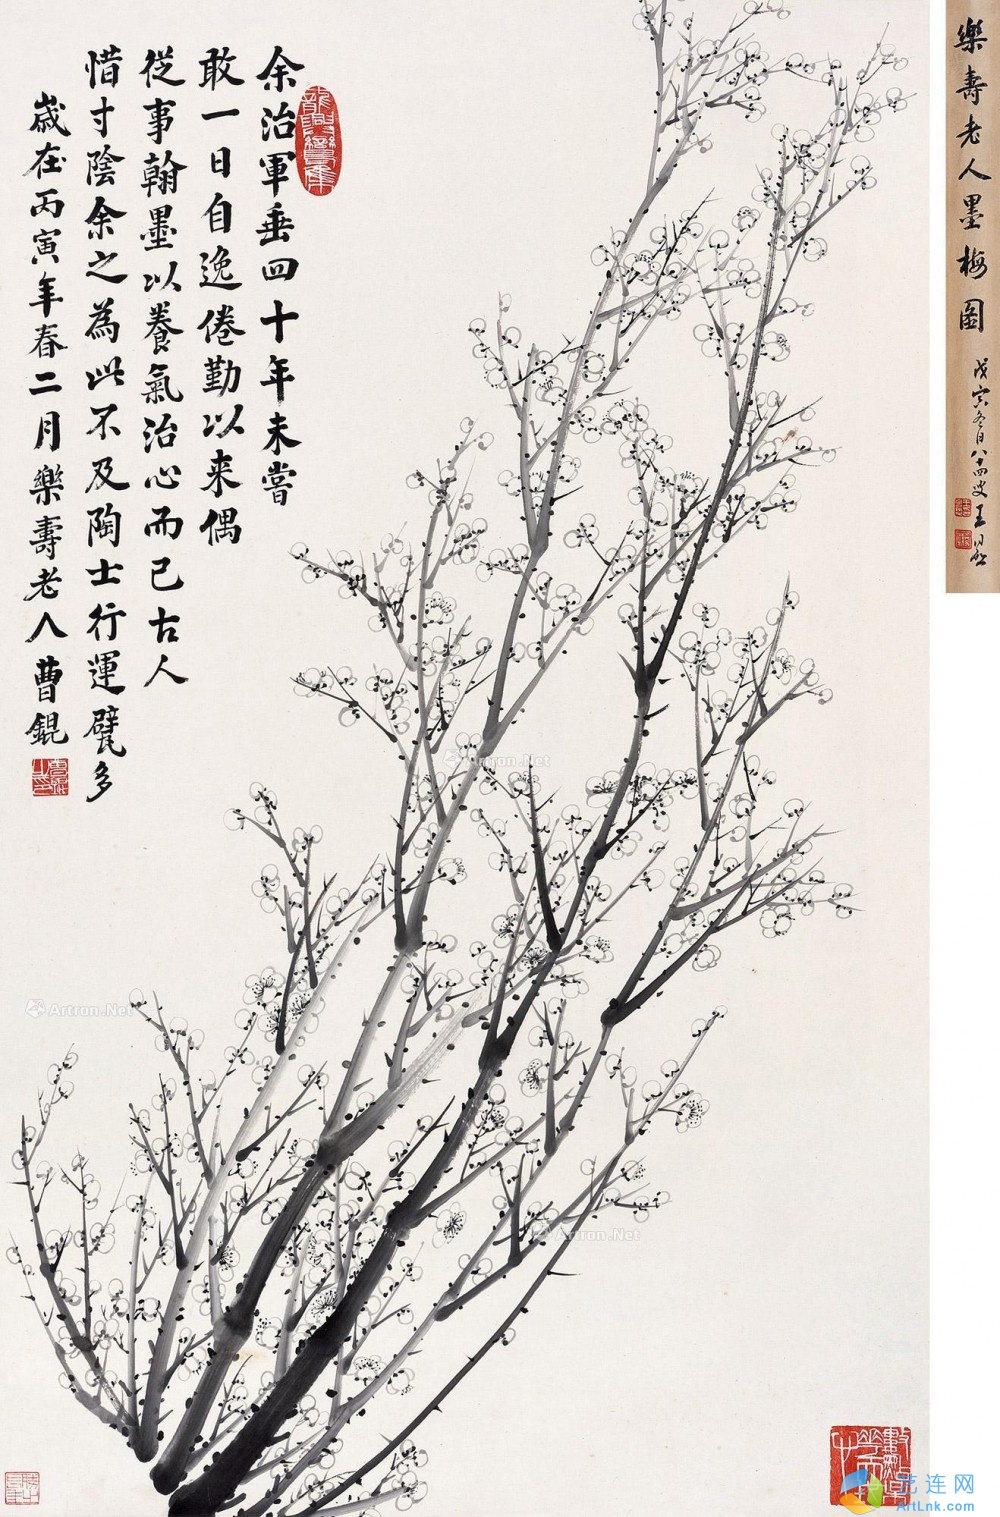 余治軍垂四十年未嘗
敢一日自逸倦勤以来偶
從事翰墨以養氣治心而已古人
惜寸陰余之為此不及陶士行運甓多
歲在丙寅年春二月樂壽老人曹錕
樂壽老人墨梅圖
戊寅冬日八十四叟王
Artron.Net
Artron.Net
Artron.Net
艺连网
ArtLnk.com